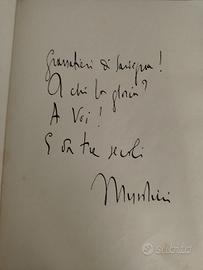 Granatieri di Sardegna!
A chi la gloria?
A Voi!
E da tre secoli
Mussolini
subito